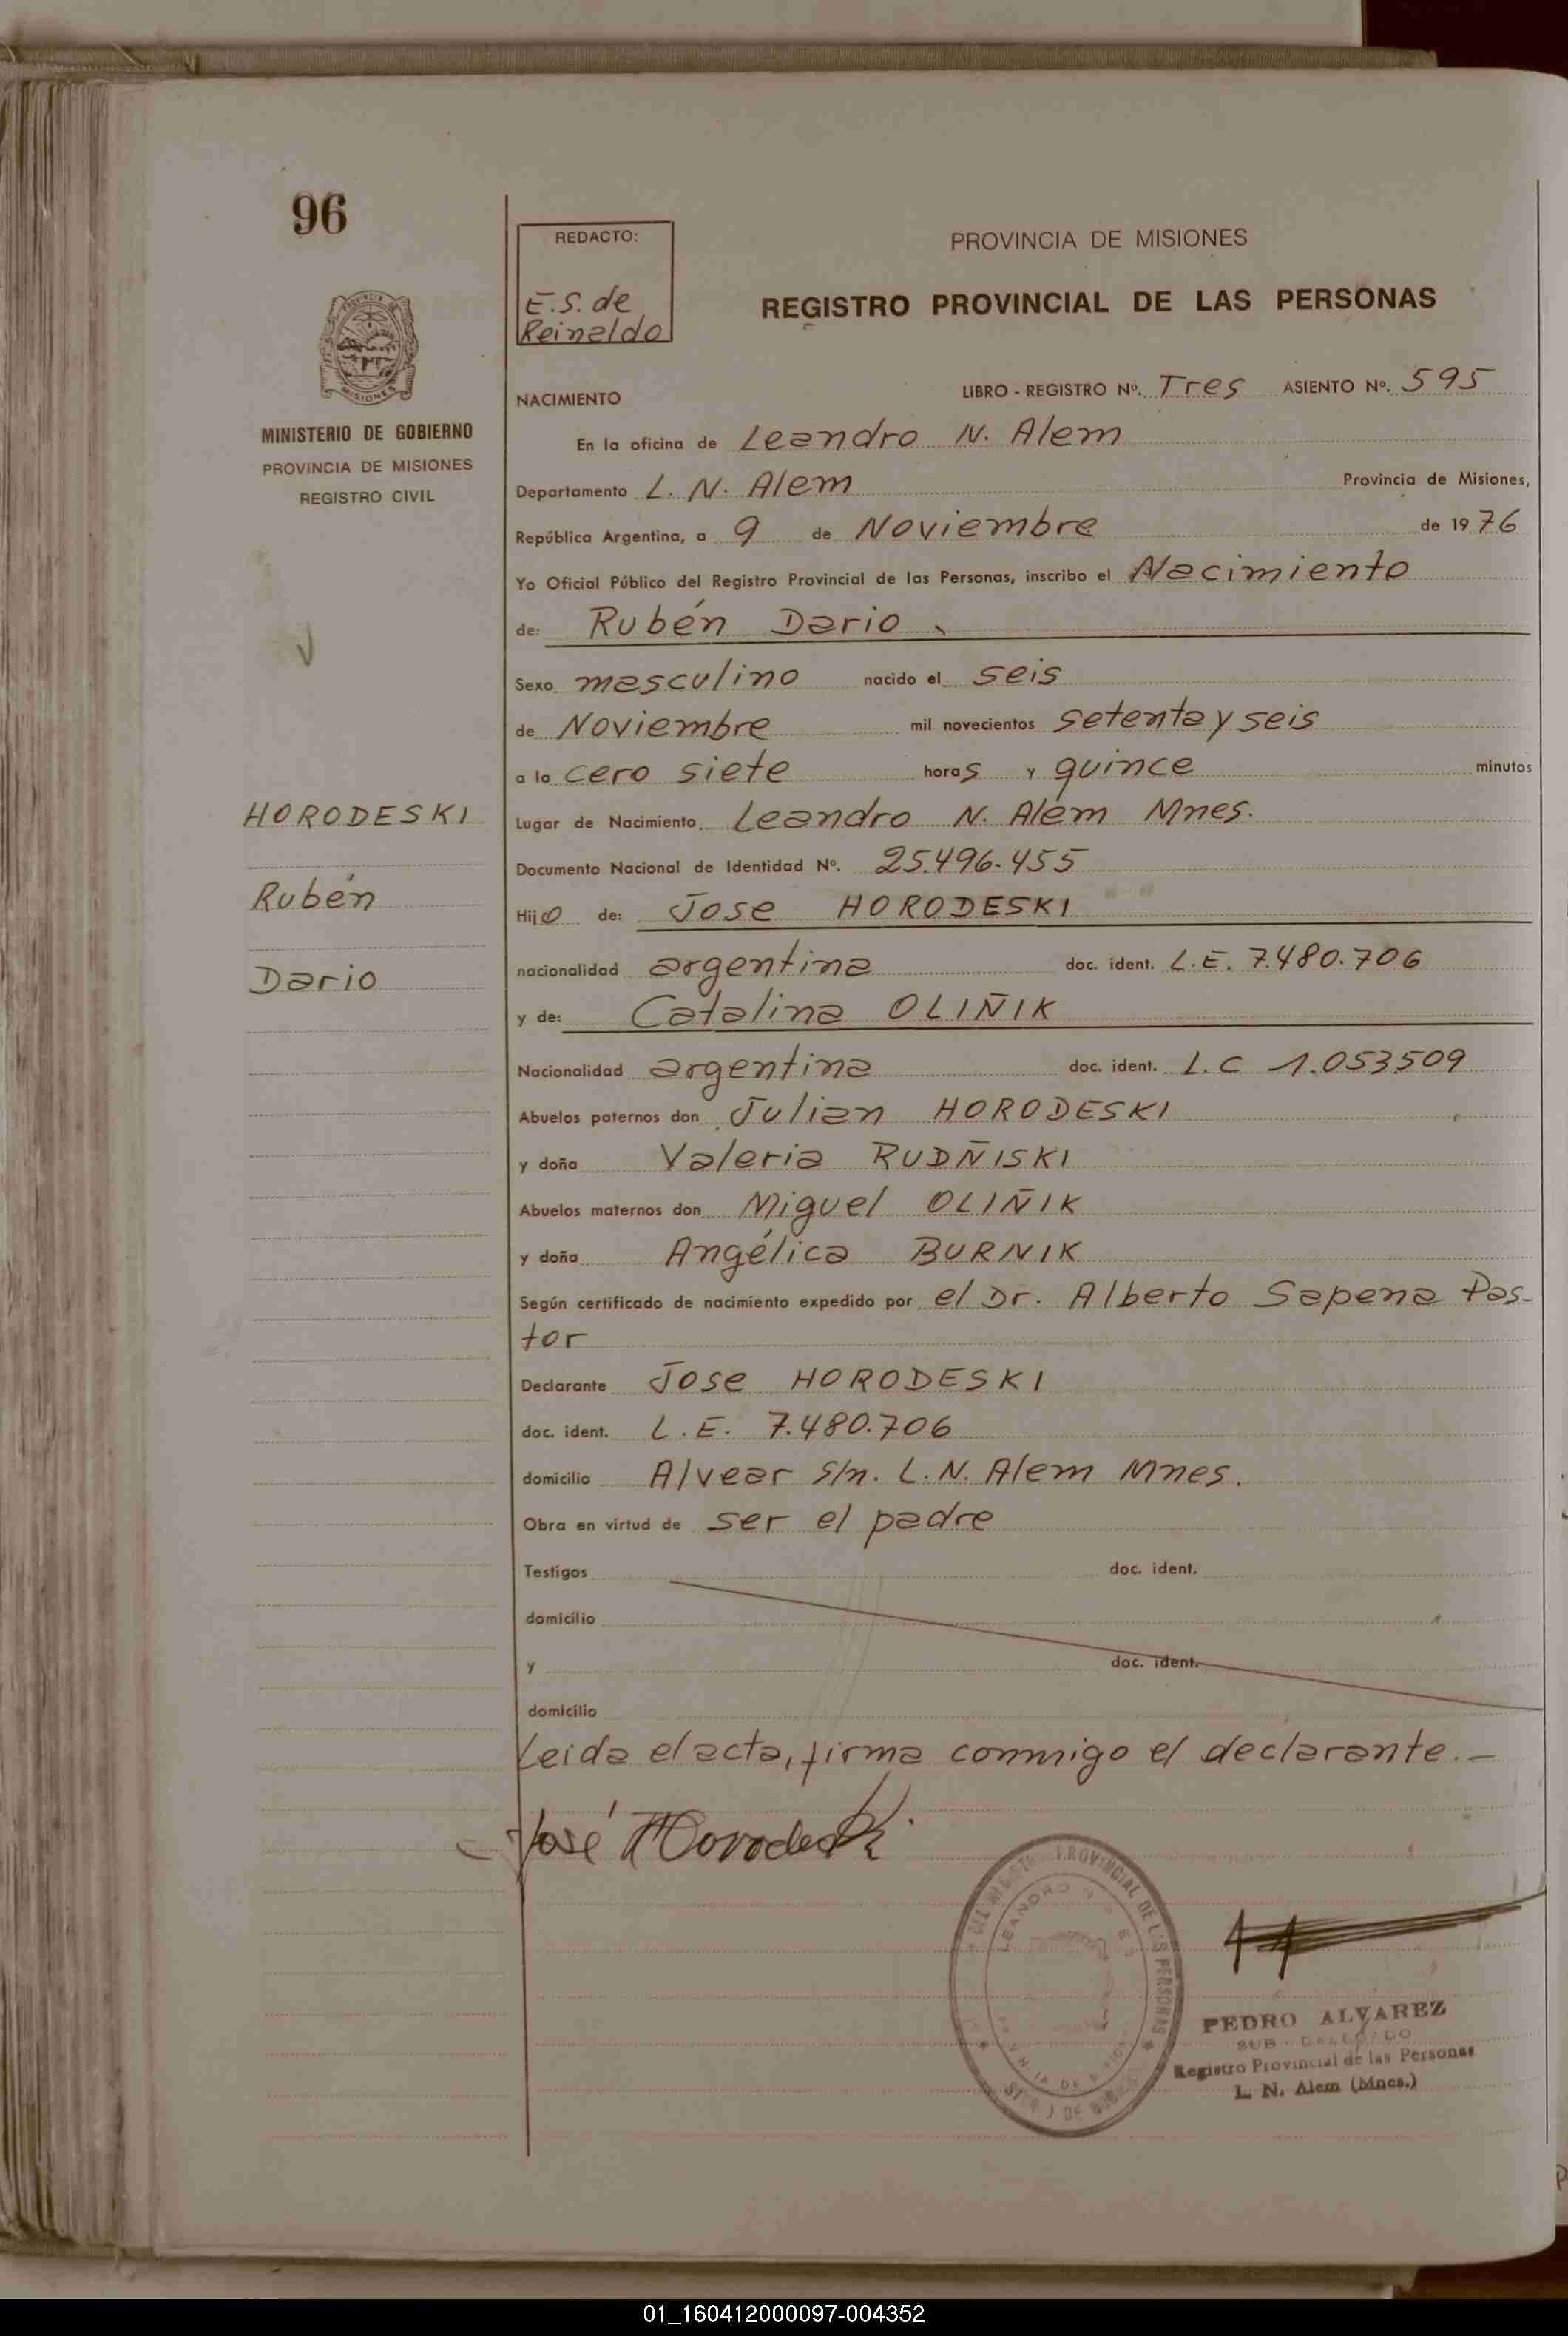 96
REDACTO:
E.S. de
Reinaldo
PROVINCIA DE MISIONES
REGISTRO PROVINCIAL DE LAS PERSONAS
MISIONES
MINISTERIO DE GOBIERNO
PROVINCIA DE MISIONES
REGISTRO CIVIL
NACIMIENTO LIBRO - REGISTRO Nº. Tres ASIENTO Nº. 595
En la oficina de Leandro N. Alem
Departamento L. N. Alem Provincia de Misiones,
República Argentina, a 9 de Noviembre de 1976
Yo Oficial Público del Registro Provincial de las Personas, inscribo el Nacimiento
de: Rubén Dario
Sexo masculino nacido el seis
de Noviembre mil novecientos setenta y seis
a la cero siete horas y quince minutos
Lugar de Nacimiento Leandro N. Alem Mnes.
Documento Nacional de Identidad Nº. 25.496.455
Hijo de: Jose HORODESKI
nacionalidad argentina doc. ident. L.E. 7.480.706
y de: Catalina OLIÑIK
Nacionalidad argentina doc. ident. L.C 1.053.509
Abuelos paternos don Julian HORODESKI
y doña Valeria RUDÑISKI
Abuelos maternos don Miguel OLIÑIK
y doña Angélica BURNIK
Según certificado de nacimiento expedido por el Dr. Alberto Sapena Pas-
tor
Declarante Jose HORODESKI
doc. ident. L.E. 7.480.706
domicilio Alvear s/n. L.N. Alem Mnes.
Obra en virtud de ser el padre
Testigos doc. ident.
domicilio
y doc. ident.
domicilio
Leida el acta, firma conmigo el declarante.-
José Horodeski
HORODESKI
Rubén
Dario
PROVINCIAL DE LAS PERSONAS
LEANDRO
PEDRO ALVAREZ
SUB - DELEGADO
Registro Provincial de las Personas
L. N. Alem (Mnes.)
01_160412000097-004352